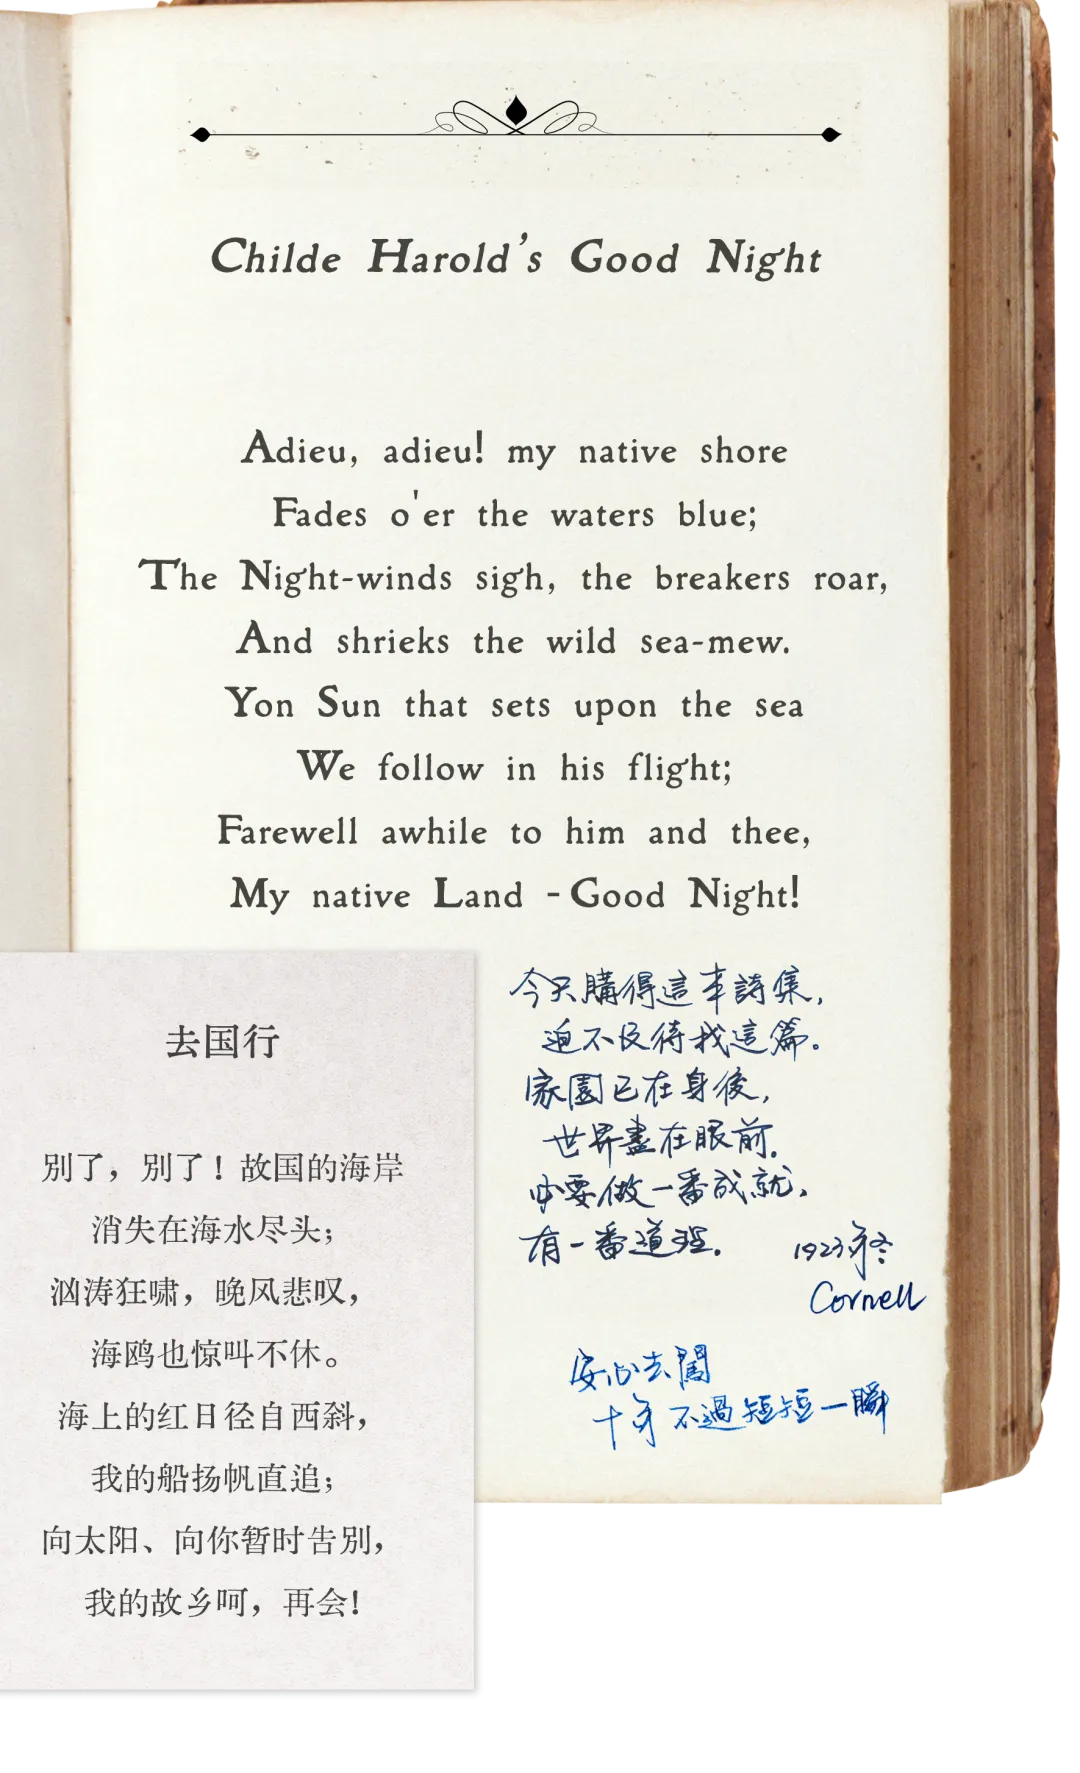 Childe Harold's Good Night
Adieu, adieu! my native shore
Fades o'er the waters blue;
The Night-winds sigh, the breakers roar,
And shrieks the wild sea-mew.
Yon Sun that sets upon the sea
We follow in his flight;
Farewell awhile to him and thee,
My native Land -Good Night!
去国行
别了，别了！故国的海岸
消失在海水尽头；
汹涛狂啸，晚风悲叹，
海鸥也惊叫不休。
海上的红日径自西斜，
我的船扬帆直追；
向太阳、向你暂时告别，
我的故乡呵，再会！
今天購得這本詩集，
迫不及待找這篇。
家園已在身後，
世界盡在眼前。
必要做一番成就，
有一番道理。
1923年冬
Cornell
安心去闖
十年不過短短一瞬